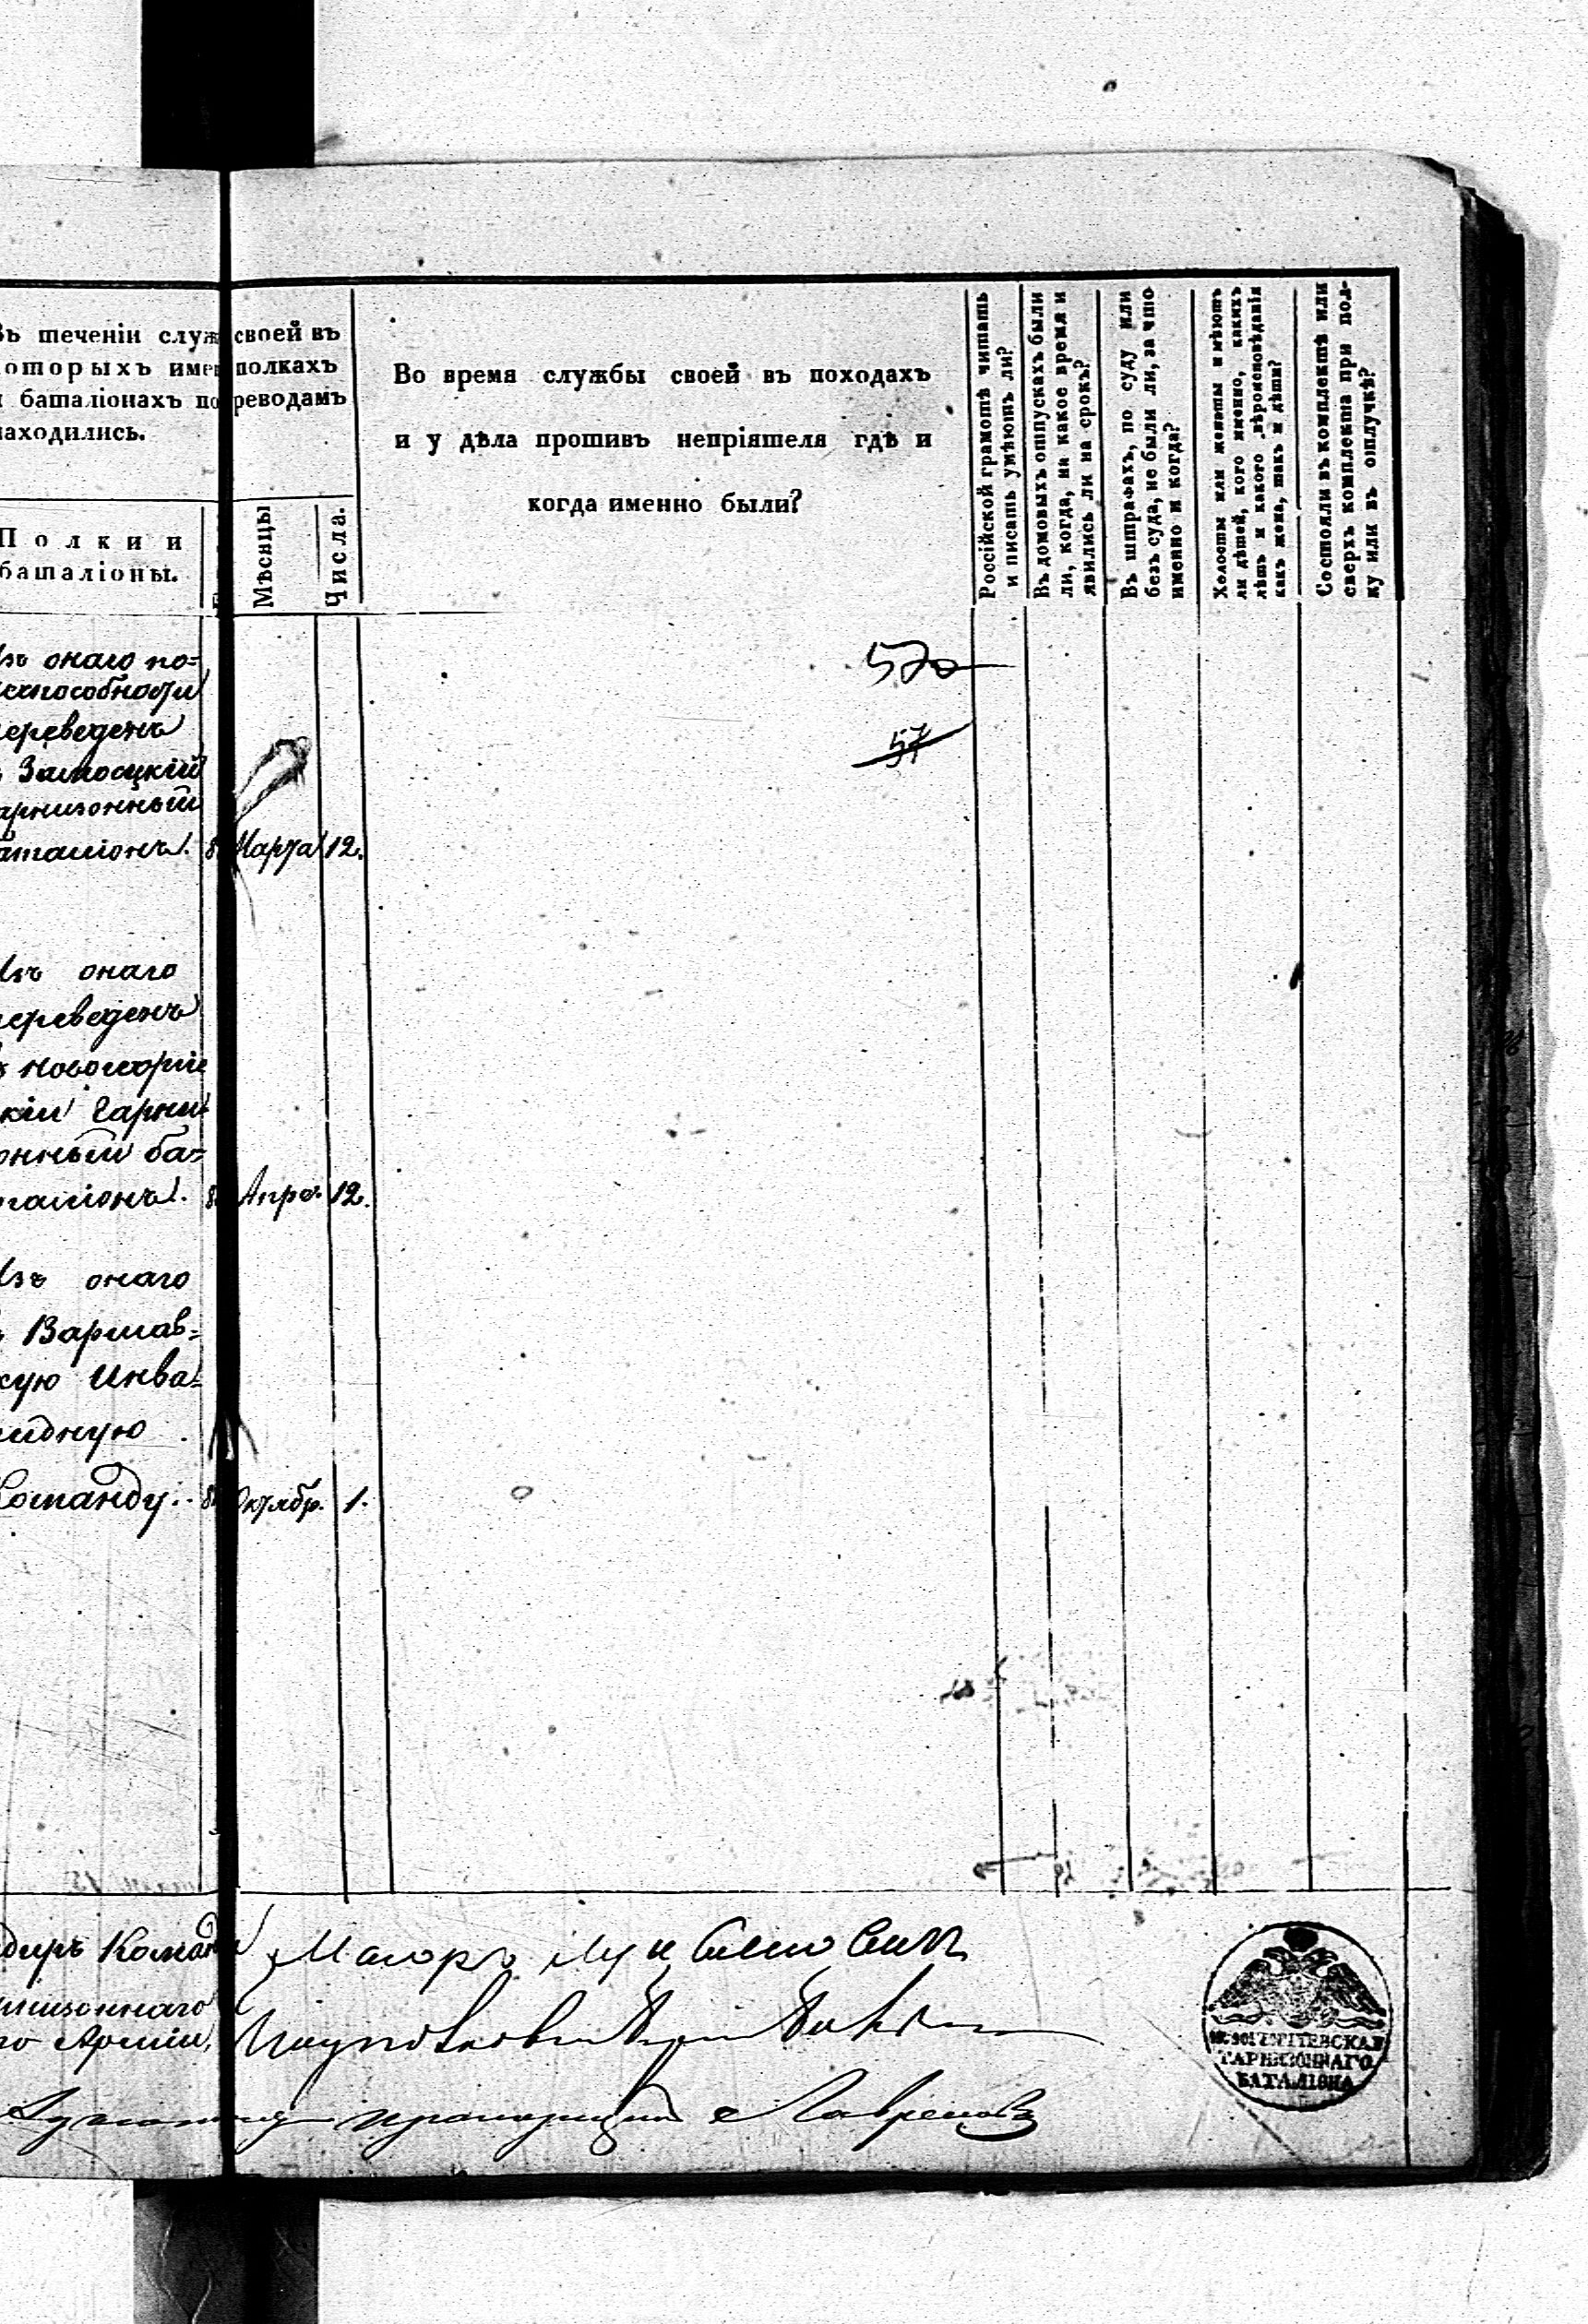 Въ теченіи служ своей въ
которыхъ имен полкахъ
и баталіонахъ по реводамъ
находились.
Полки и
баталіоны.
Мѣсяцы
Числа.
Во время службы своей въ походахъ
и у дѣла противъ непріятеля гдѣ и
когда именно были?
Россійской грамотѣ читать
и писать умѣютъ ли?
Въ домовыхъ отпускахъ были
ли, когда, на какое время и
явились ли на срокъ?
Въ штрафахъ, по суду или
безъ суда, не были ли, за что
именно и когда?
Холосты или женаты и имѣютъ
ли дѣтей, кого именно, какихъ
лѣтъ и какого вѣроисповѣданія
какъ жена, такъ и дѣти?
Состояли въ комплектѣ или
сверхъ комплекта при пол-
ку или въ отлучкѣ?
57
Изъ онаго по=
неспособности
переведенъ
Замосцкій
гарнизонный
баталіонъ. Марта 12.
Изъ онаго
переведенъ
новогеоргіе
кій Гарни
онный ба=
таліонъ. Апрѣ. 12.
Изъ онаго
Варшав=
скую Инва=
лидную
Команду. Октябр. 1.
диръ Коман Маіоръ
низоннаго
Арміи,
прапорщикъ Лавреновъ
ГАРНИЗОННАГО
БАТАЛІОНА